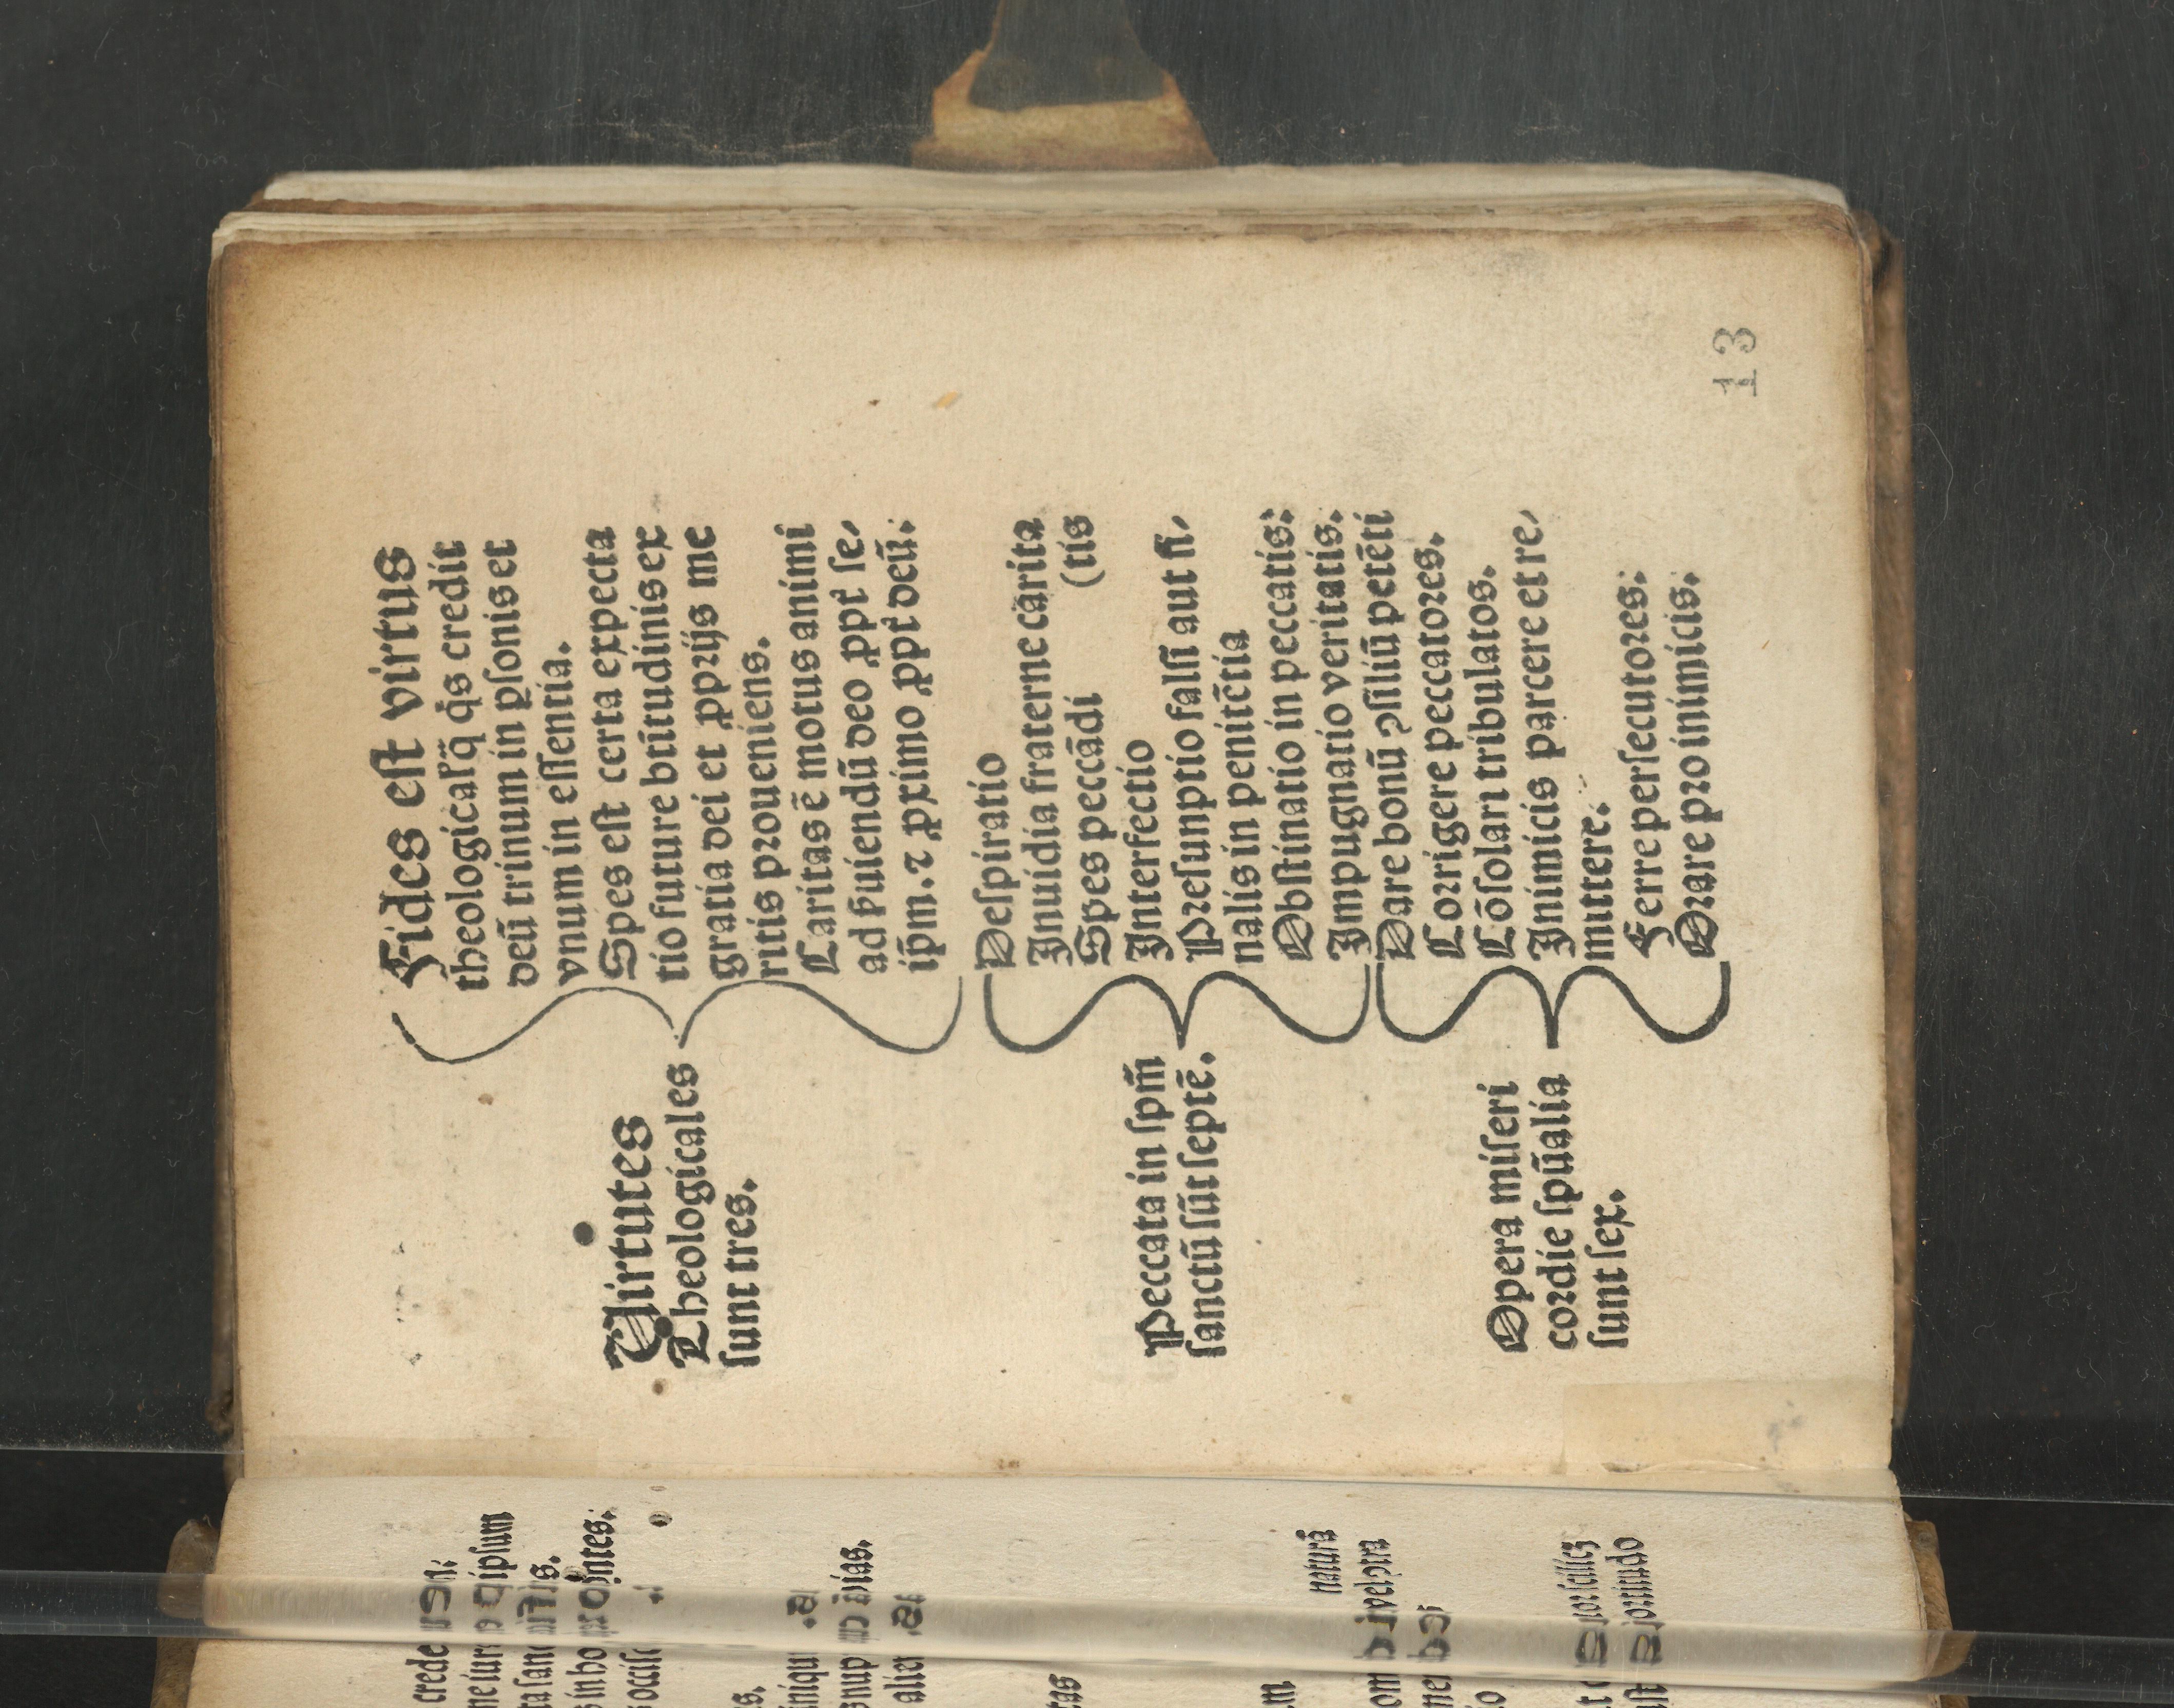 Virtutes
Theologicales
sunt tres.
Fides est virtus
theological' q̃ q̃s credit
deũ trinum in ꝑsonis et
vnum in essentia.
Spes est certa expecta
tio future bt̃itudinis ex
gratia dei et ꝓprijs me
ritis proueniens.
Caritas ẽ motus animi
ad fruiendũ deo ꝓpt̉ se,
ip̃m. ⁊ ꝓximo ꝓpt̉ deũ.
Peccata in sp̃m
sanctũ sũt septẽ.
Despiratio
Inuidia fraterne carita
Spes peccãdi (tis
Interfectio
Presumptio falsi aut fi,
nalis in penitẽtia
Obstinatio in peccatis:
Impugnatio veritatis.
Opera miseri
cordie sp̃ualia
sunt sex.
Dare bonũ ꝯsiliũ petẽti
Corrigere peccatores.
Cõsolari tribulatos.
Inimicis parcere et re,
mittere.
Ferre persecutores:
Orare pro inimicis.
13
crede
ipsum
vias.
naturã